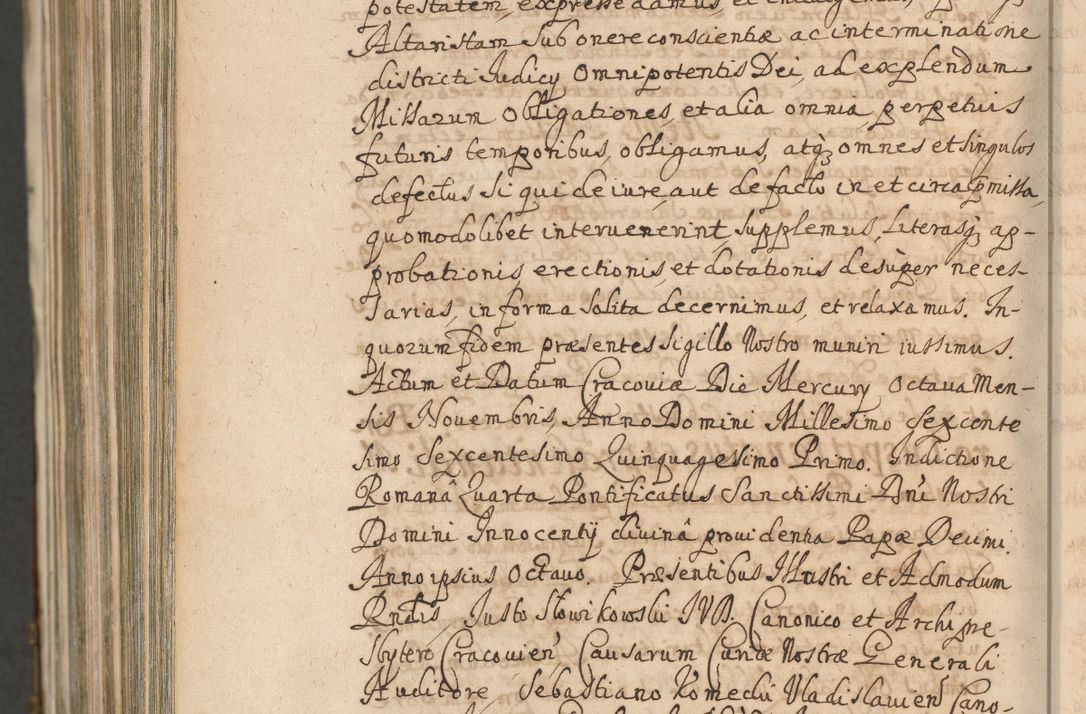 potestatem, expresse damus, et
Altaristam sub onere conscientiæ ac interminatione
districti Judicÿ Omnipotentis Dei, ad explendum
Missarum Obligationes, et alia omnia perpetuis
futuris temporibus, obligamus, atq; omnes et singulos
defectus si qui de iure, aut de facto in et circa p̃missa,
quomodolibet intervenerint, supplemus, Literasq; ap-
probationis, erectionis, et dotationis desuper neces-
sarias, in forma solita decernimus, et relaxamus. In-
quorum fidem præsentes sigillo Nostro muniri iussimus.
Actum et Datum Cracoviæ Die Mercurÿ Octava Men-
sis Novembris, Anno Domini Millesimo Sexcente
simo Sexcentesimo Quinquagesimo Primo. Indictione
Romanâ Quarta Pontificatus Sanctissimi Dn̄i Nostri
Domini Innocentÿ divinâ providentia Papæ Decimi.
Anno ipsius Octavo. Præsentibus Illustri et Admodum
Rndis Justo Słowikowski JVD. Canonico et Archipre-
sbytero Cracovien̄ Causarum Curiæ Nostræ Generali
Auditore Sebastiano Komecki Vladislavien̄ Cano-